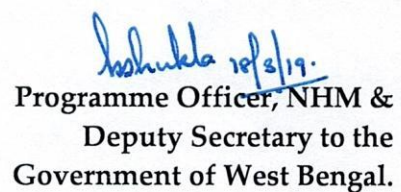 18/3/19.
Programme Officer, NHM &
Deputy Secretary to the
Government of West Bengal.